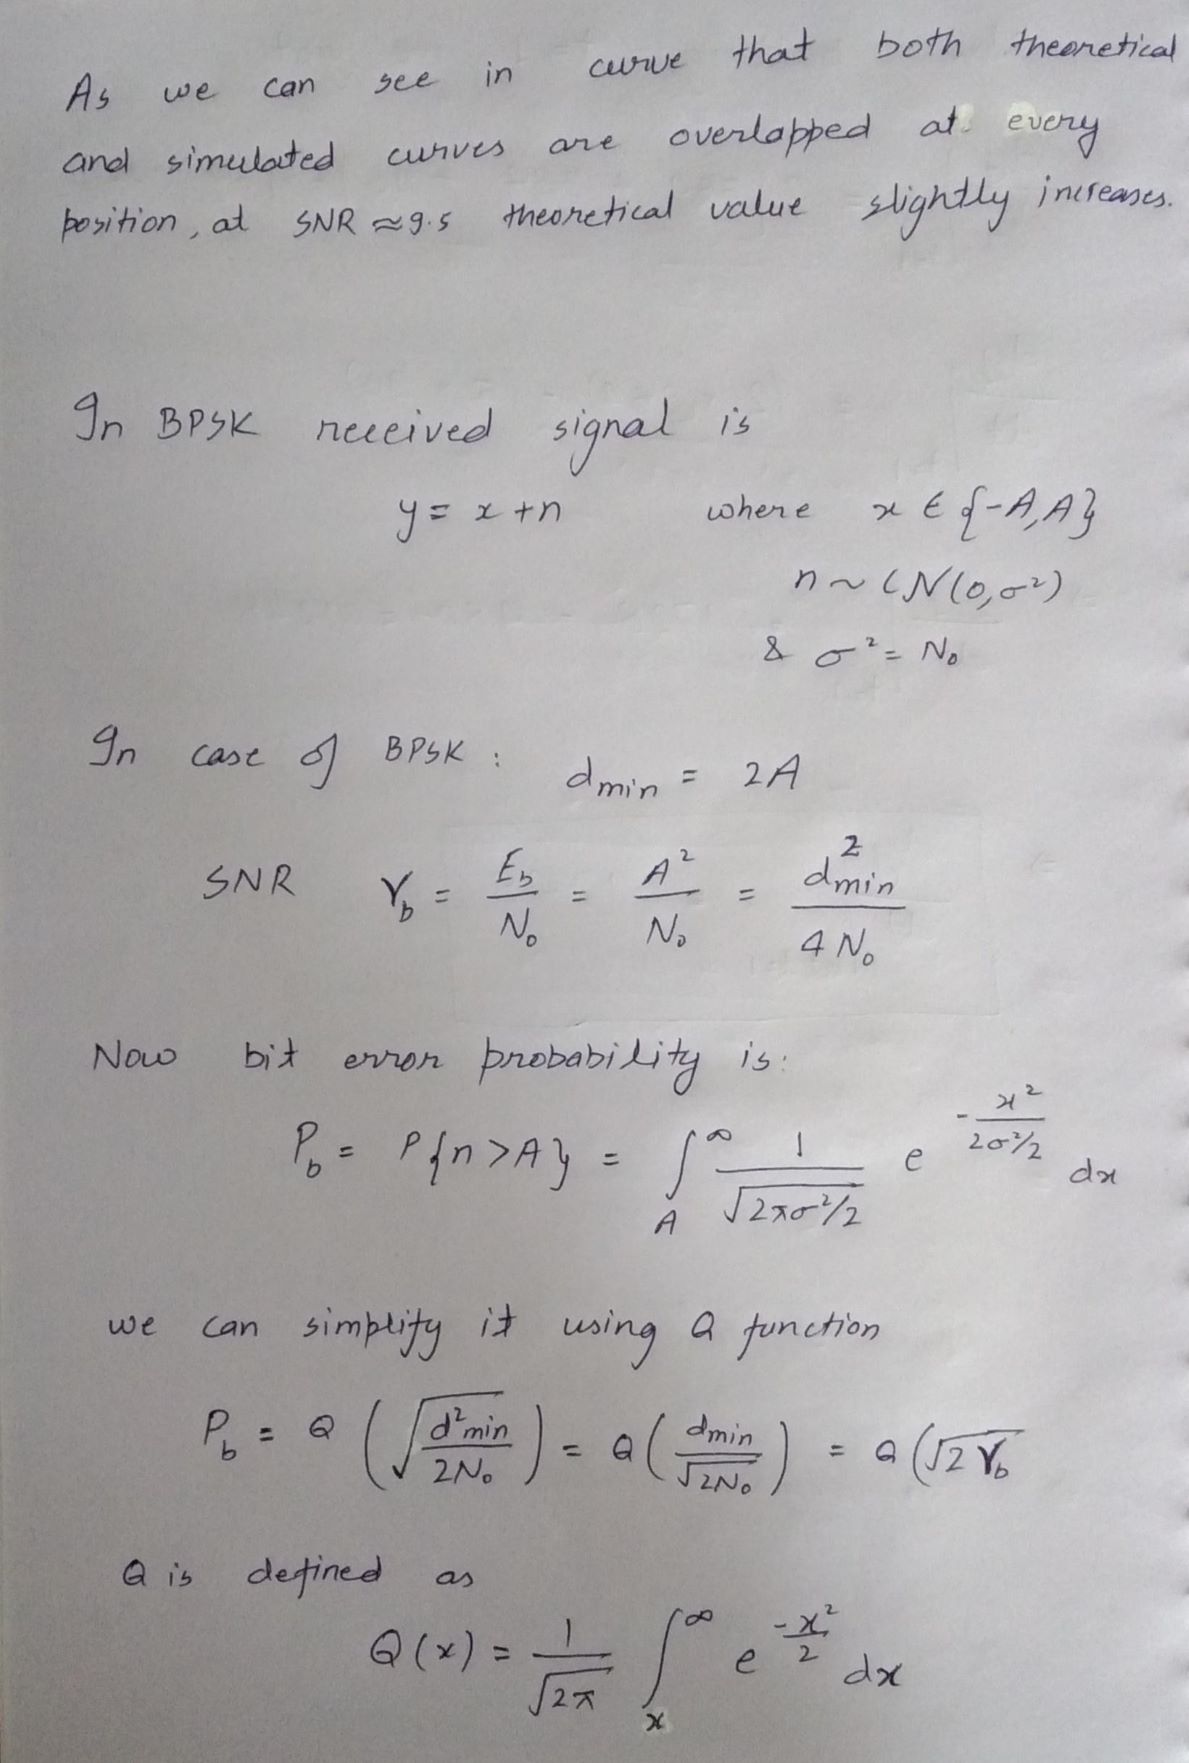 As we can see in curve that both theoretical
and simulated curves are overlapped at every
position, at SNR ≈ 9.5 theoretical value slightly increases.
In BPSK received signal is
y = x + n where x ∈ {-A, A}
n ~ CN(0, σ²)
& σ² = N₀
In case of BPSK : d_min = 2A
SNR γ_b = E_b/N₀ = A²/N₀ = d²_min/4N₀
Now bit error probability is:
P_b = P{n > A} = ∫_A^∞ 1/√(2πσ²/2) e^(-x²/(2σ²/2)) dx
we can simplify it using Q function
P_b = Q(√(d²min/2N₀)) = Q(dmin/√2N₀) = Q(√2γ_b
Q is defined as
Q(x) = 1/√2π ∫_x^∞ e^(-x²/2) dx